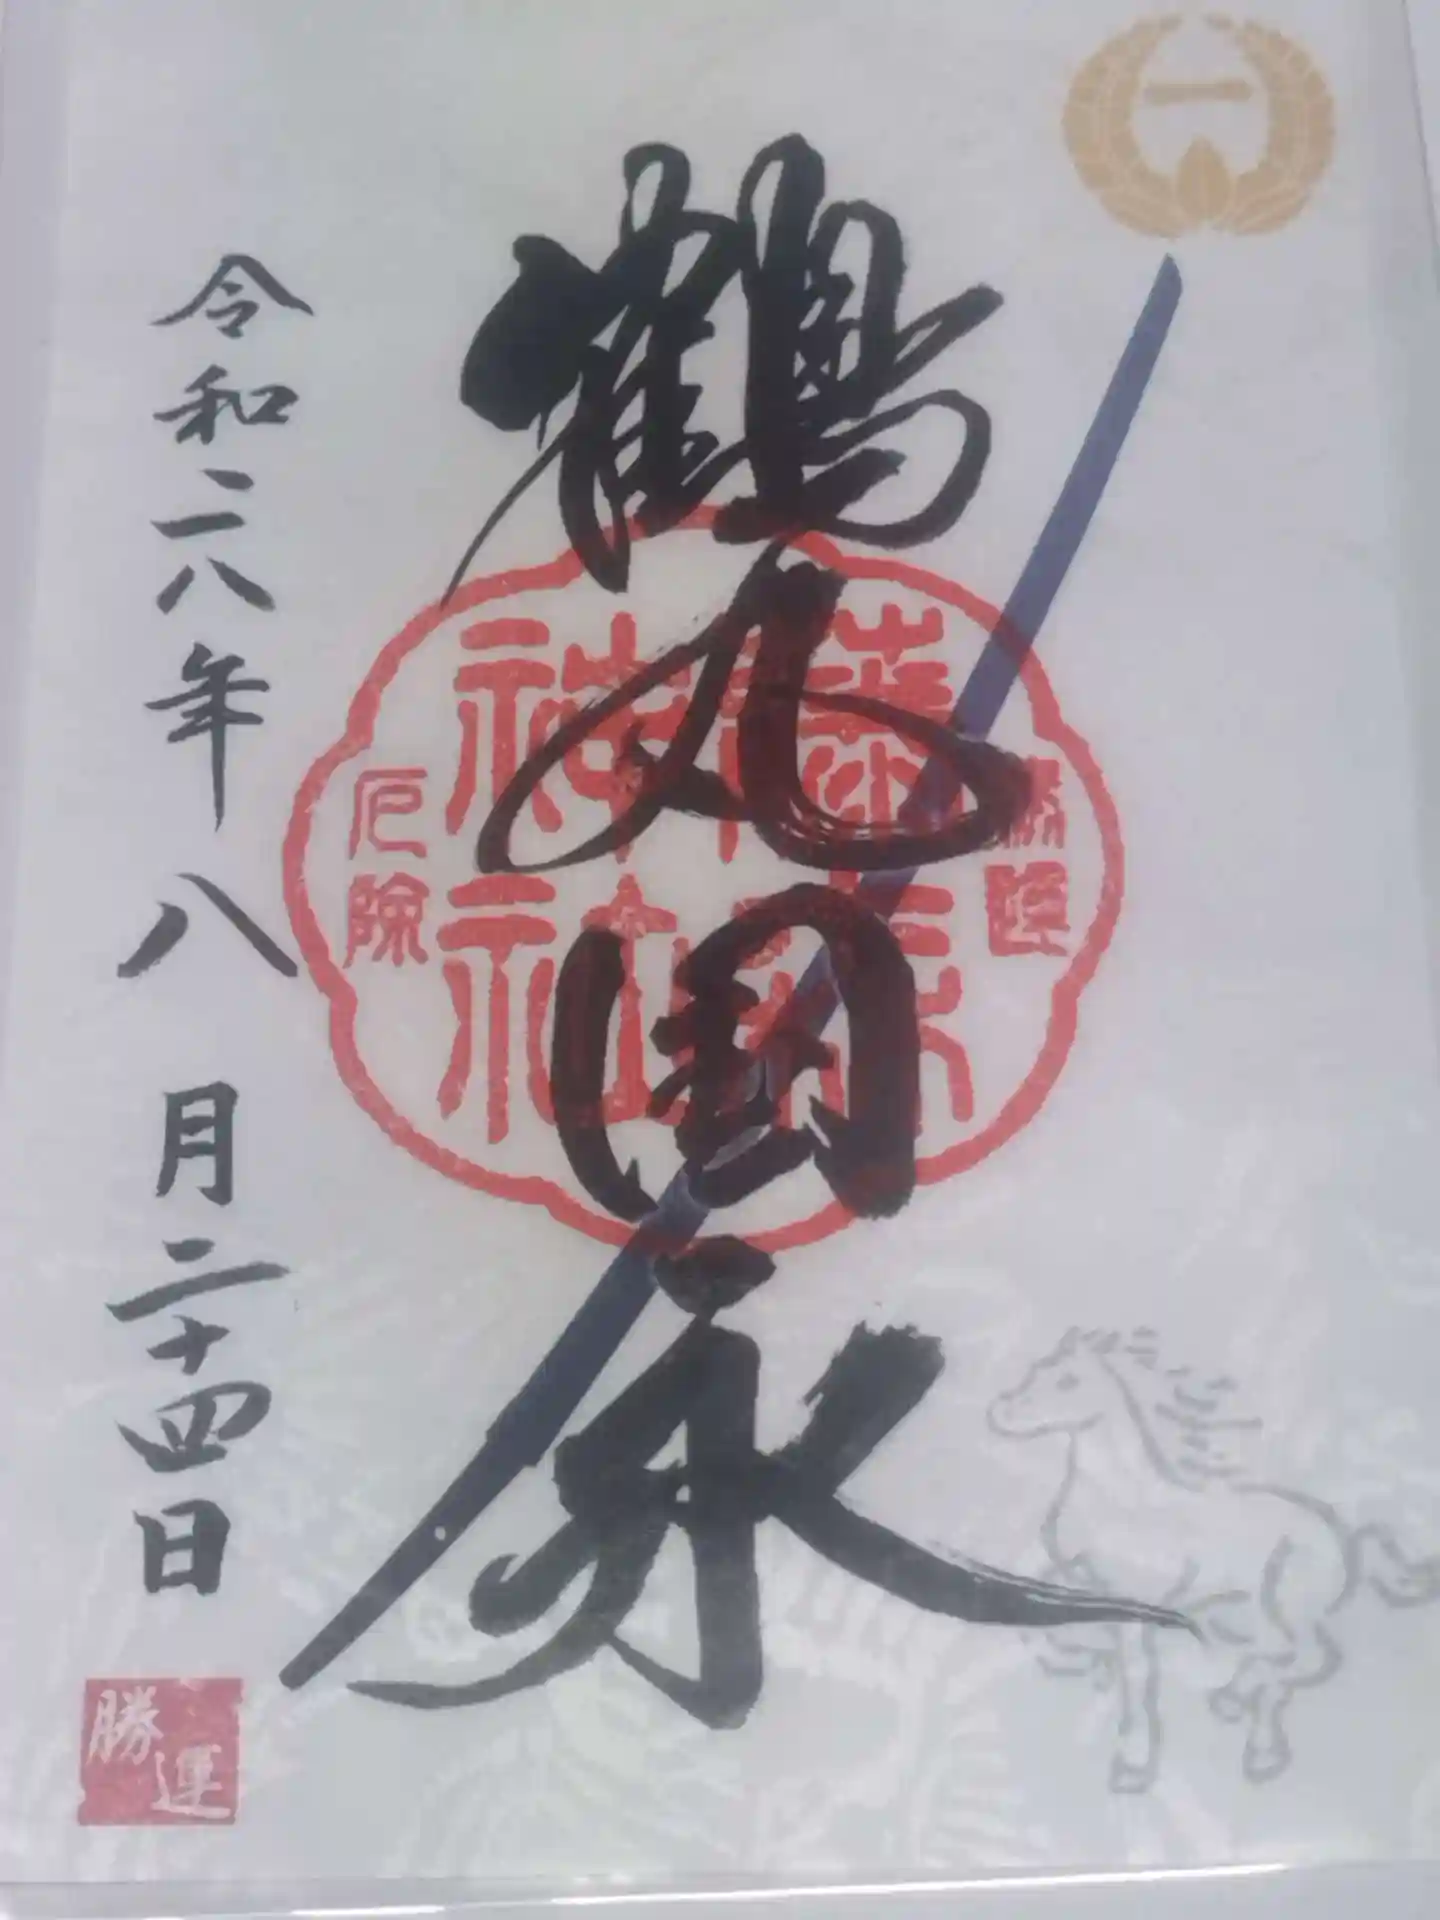 一
鶴丸国永
勝運
藤森
神社
厄除
令和元年八月二十四日
勝運